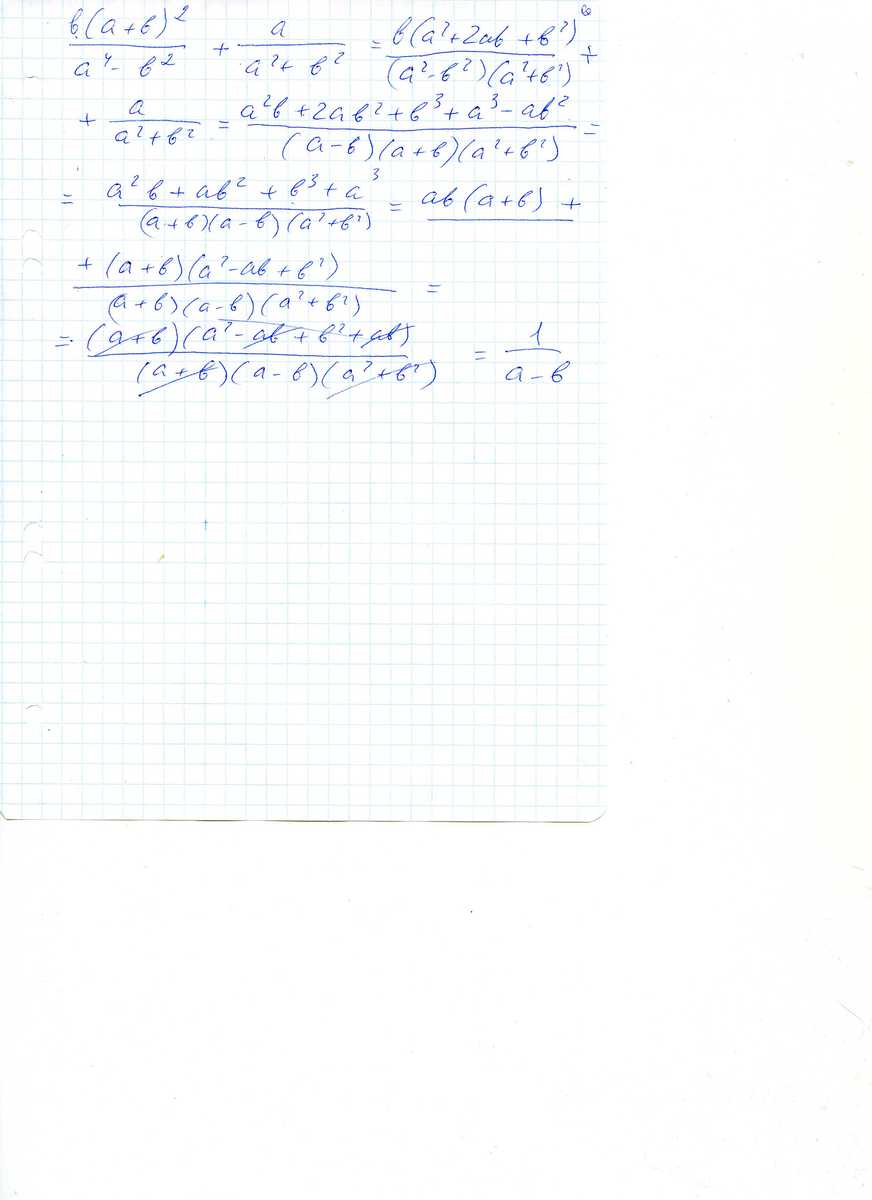 в(a+в)²/(a⁴-в²) + a/(a²+в²) = в(a²+2aв+в²)/((a²-в²)(a²+в²)) +
+ a/(a²+в²) = (a²в+2aв²+в³+a³-aв²)/((a-в)(a+в)(a²+в²)) =
= (a²в+aв²+в³+a³)/((a+в)(a-в)(a²+в²)) = aв(a+в) +
+ (a+в)(a²-aв+в²)/((a+в)(a-в)(a²+в²)) =
= (a+в)(a²-aв+в²+aв)/((a+в)(a-в)(a²+в²)) = 1/(a-в)